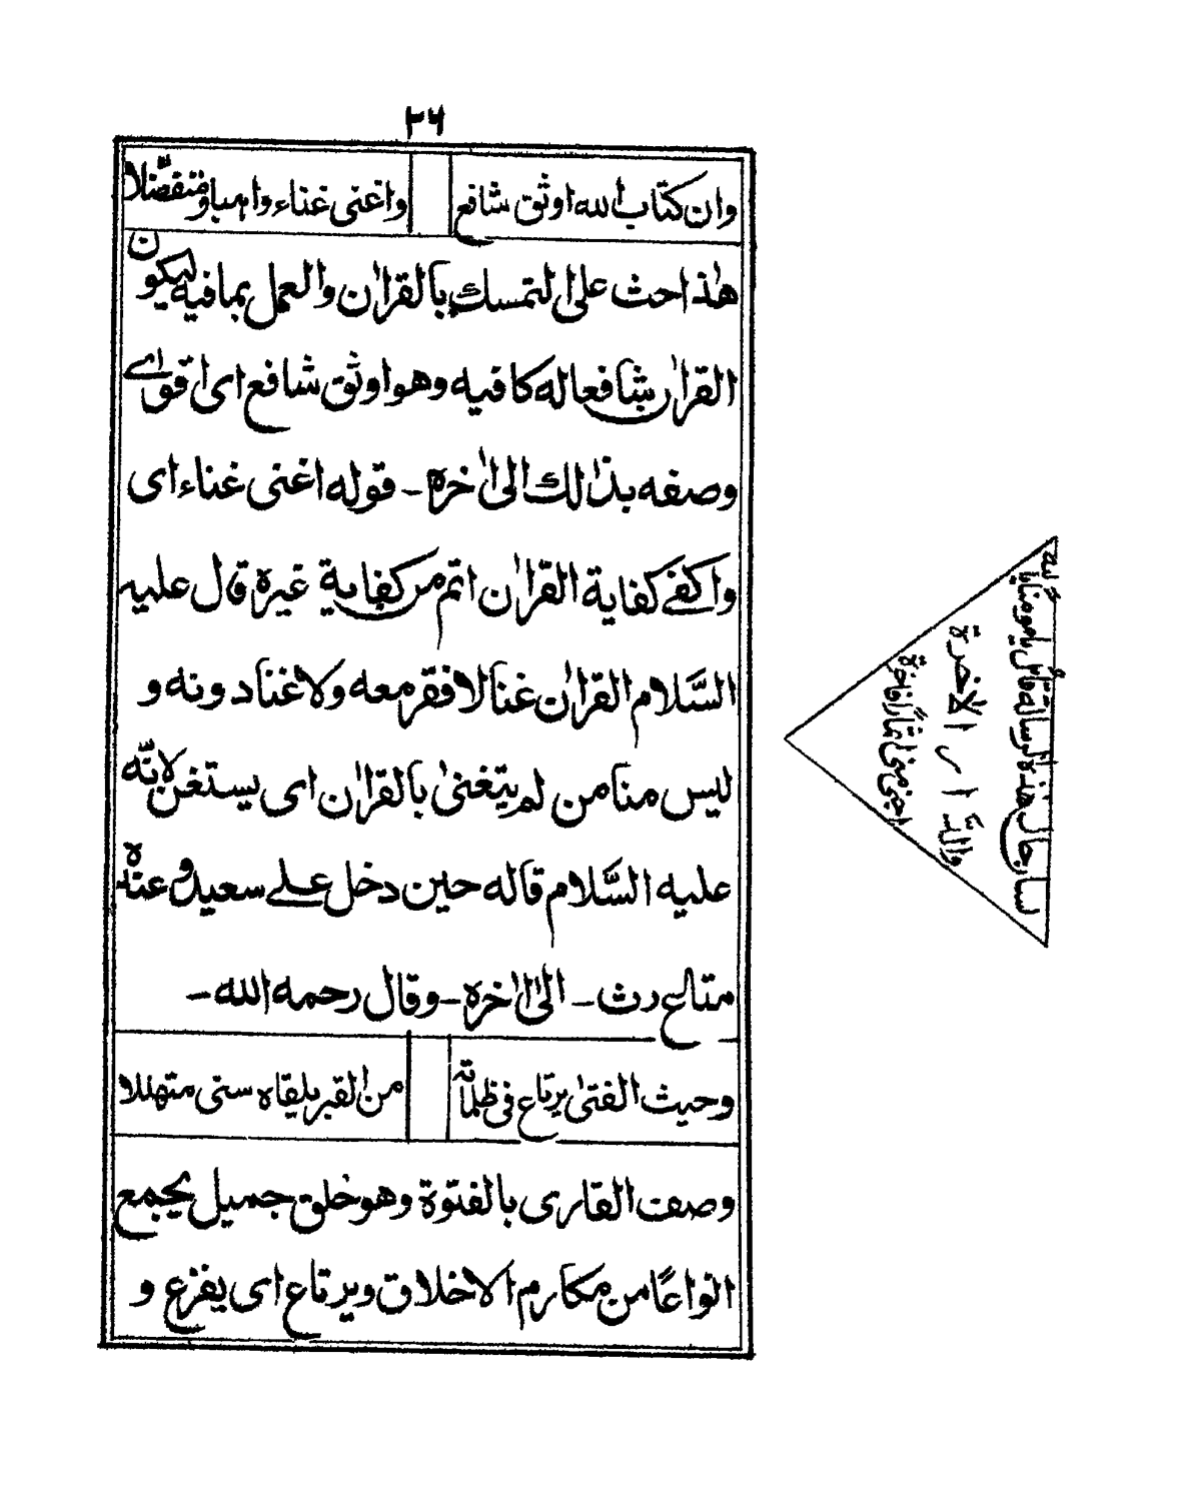 ٢٦
وان كتاب الله اوثق شافع واغنى غناء واهبا متفضلا
هٰذا حث على التمسك بالقراٰن والعمل بما فيه ليكون
القراٰن شافعا له كافيه وهو اوثق شافع اى اقوى
وصفه بذٰلك الى اٰخره - قوله اغنى غناء اى
واكفے كفاية القراٰن اتم من كفاية غيره قال عليه
السَّلام القراٰن غنا لا فقر معه ولا غنا دونه و
ليس منا من لم يتغنىٰ بالقراٰن اى يستغن لانّه
عليه السَّلام قاله حين دخل علے سعيد وعنده
متاع رث - الىٰ اٰخره - وقال رحمه الله -
وحيث الفتىٰ يرتاع فى ظلماته من القبر يلقاه سنى متهللا
وصف القارى بالفتوة وهو خلق جميل يجمع
انواعًا من مكارم الاخلاق ويرتاع اى يفزع و
والدّار الاخرة